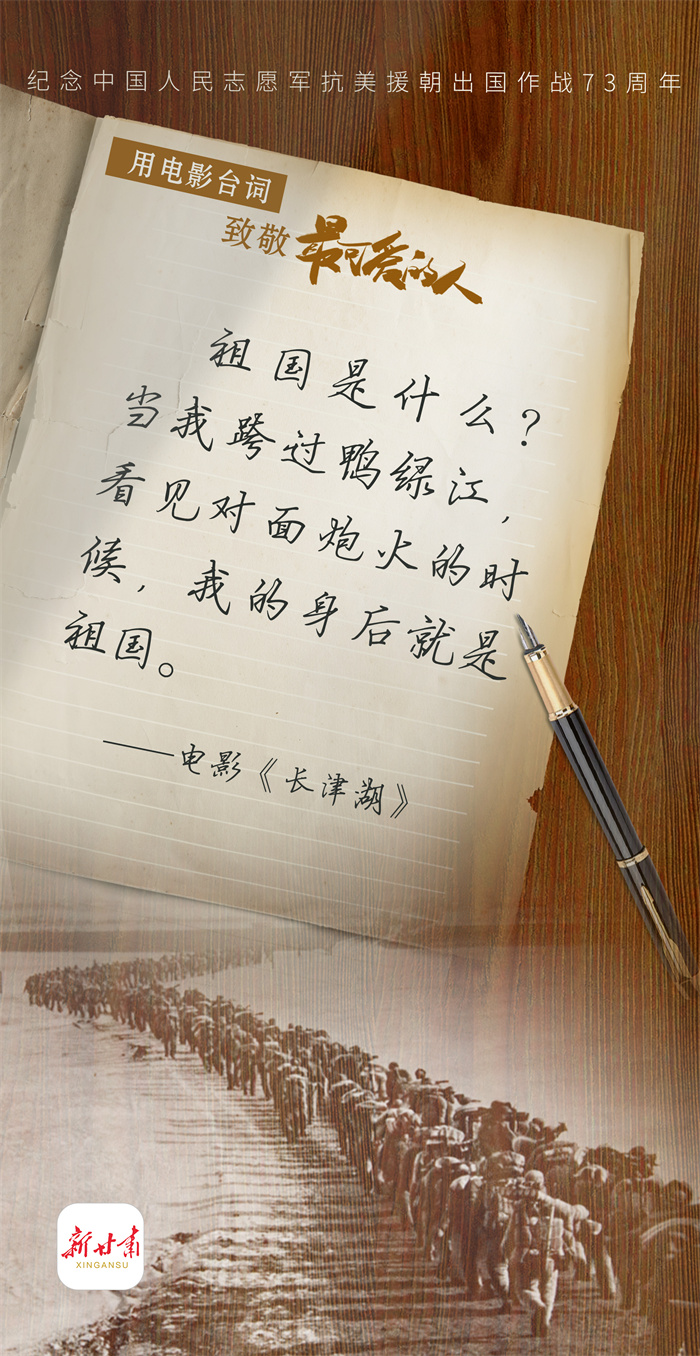 纪念中国人民志愿军抗美援朝出国作战73周年
用电影台词
致敬最可爱的人
祖国是什么?
当我跨过鸭绿江,
看见对面炮火的时
候,我的身后就是
祖国。
——电影《长津湖》
新甘肃
XINGANSU